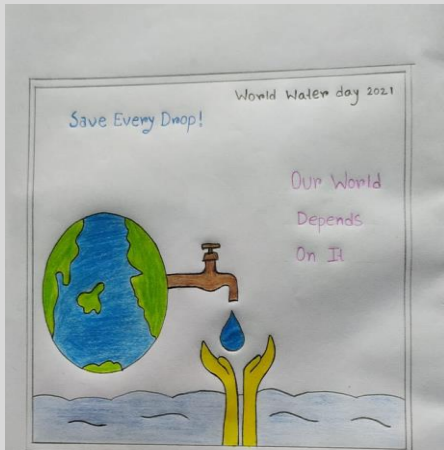 World Water day 2021
Save Every Drop!
Our World
Depends
On It